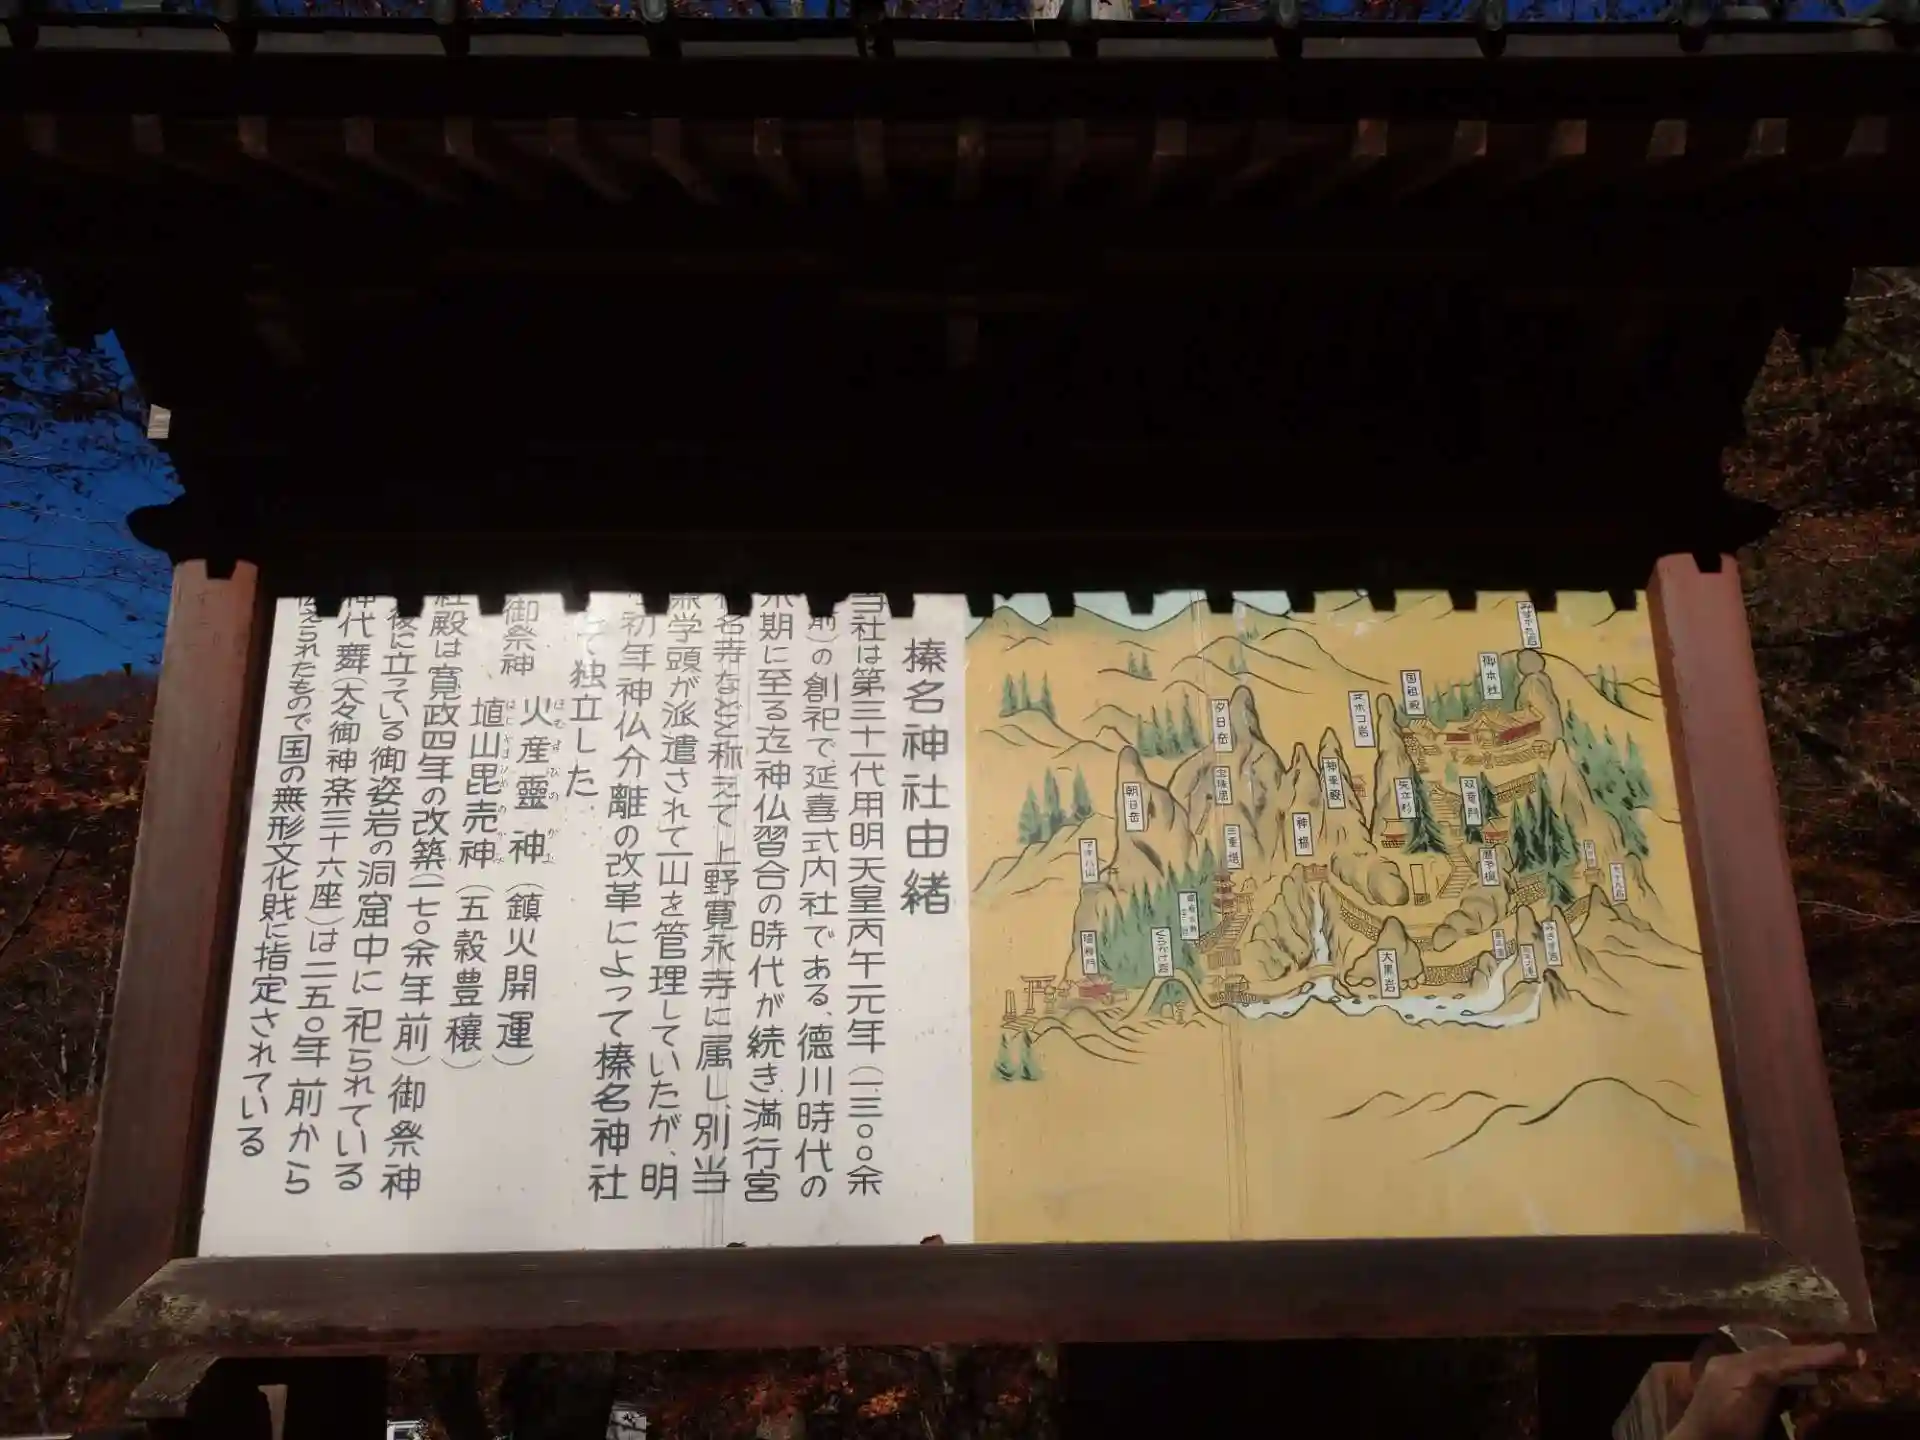 榛名神社由緒
当社は第三十一代用明天皇丙午元年(一三〇〇余
前)の創祀で、延喜式内社である、徳川時代の
期に至る迄神仏習合の時代が続き、満行宮
名寺などと称えて上野寛永寺に属し、別当
兼学頭が派遣されて一山を管理していたが、明
初年神仏分離の改革によって榛名神社
て独立した.
御祭神 火産靈神(鎮火開運)
ほむすびのかみ
埴山毘売神(五穀豊穣)
はにやまひめのかみ
社殿は寛政四年の改築(一七〇余年前)御祭神
後に立っている御姿岩の洞窟中に祀られている
神代舞(大々御神楽三十六座)は二五〇年前から
伝えられたもので国の無形文化財に指定されている
みすがた岩
御本社
国祖殿
ヌホコ岩
夕日岳
朝日岳
神楽殿
矢立杉
双竜門
神橋
三重塔
くらかけ岩
大黒岩
みさご岩